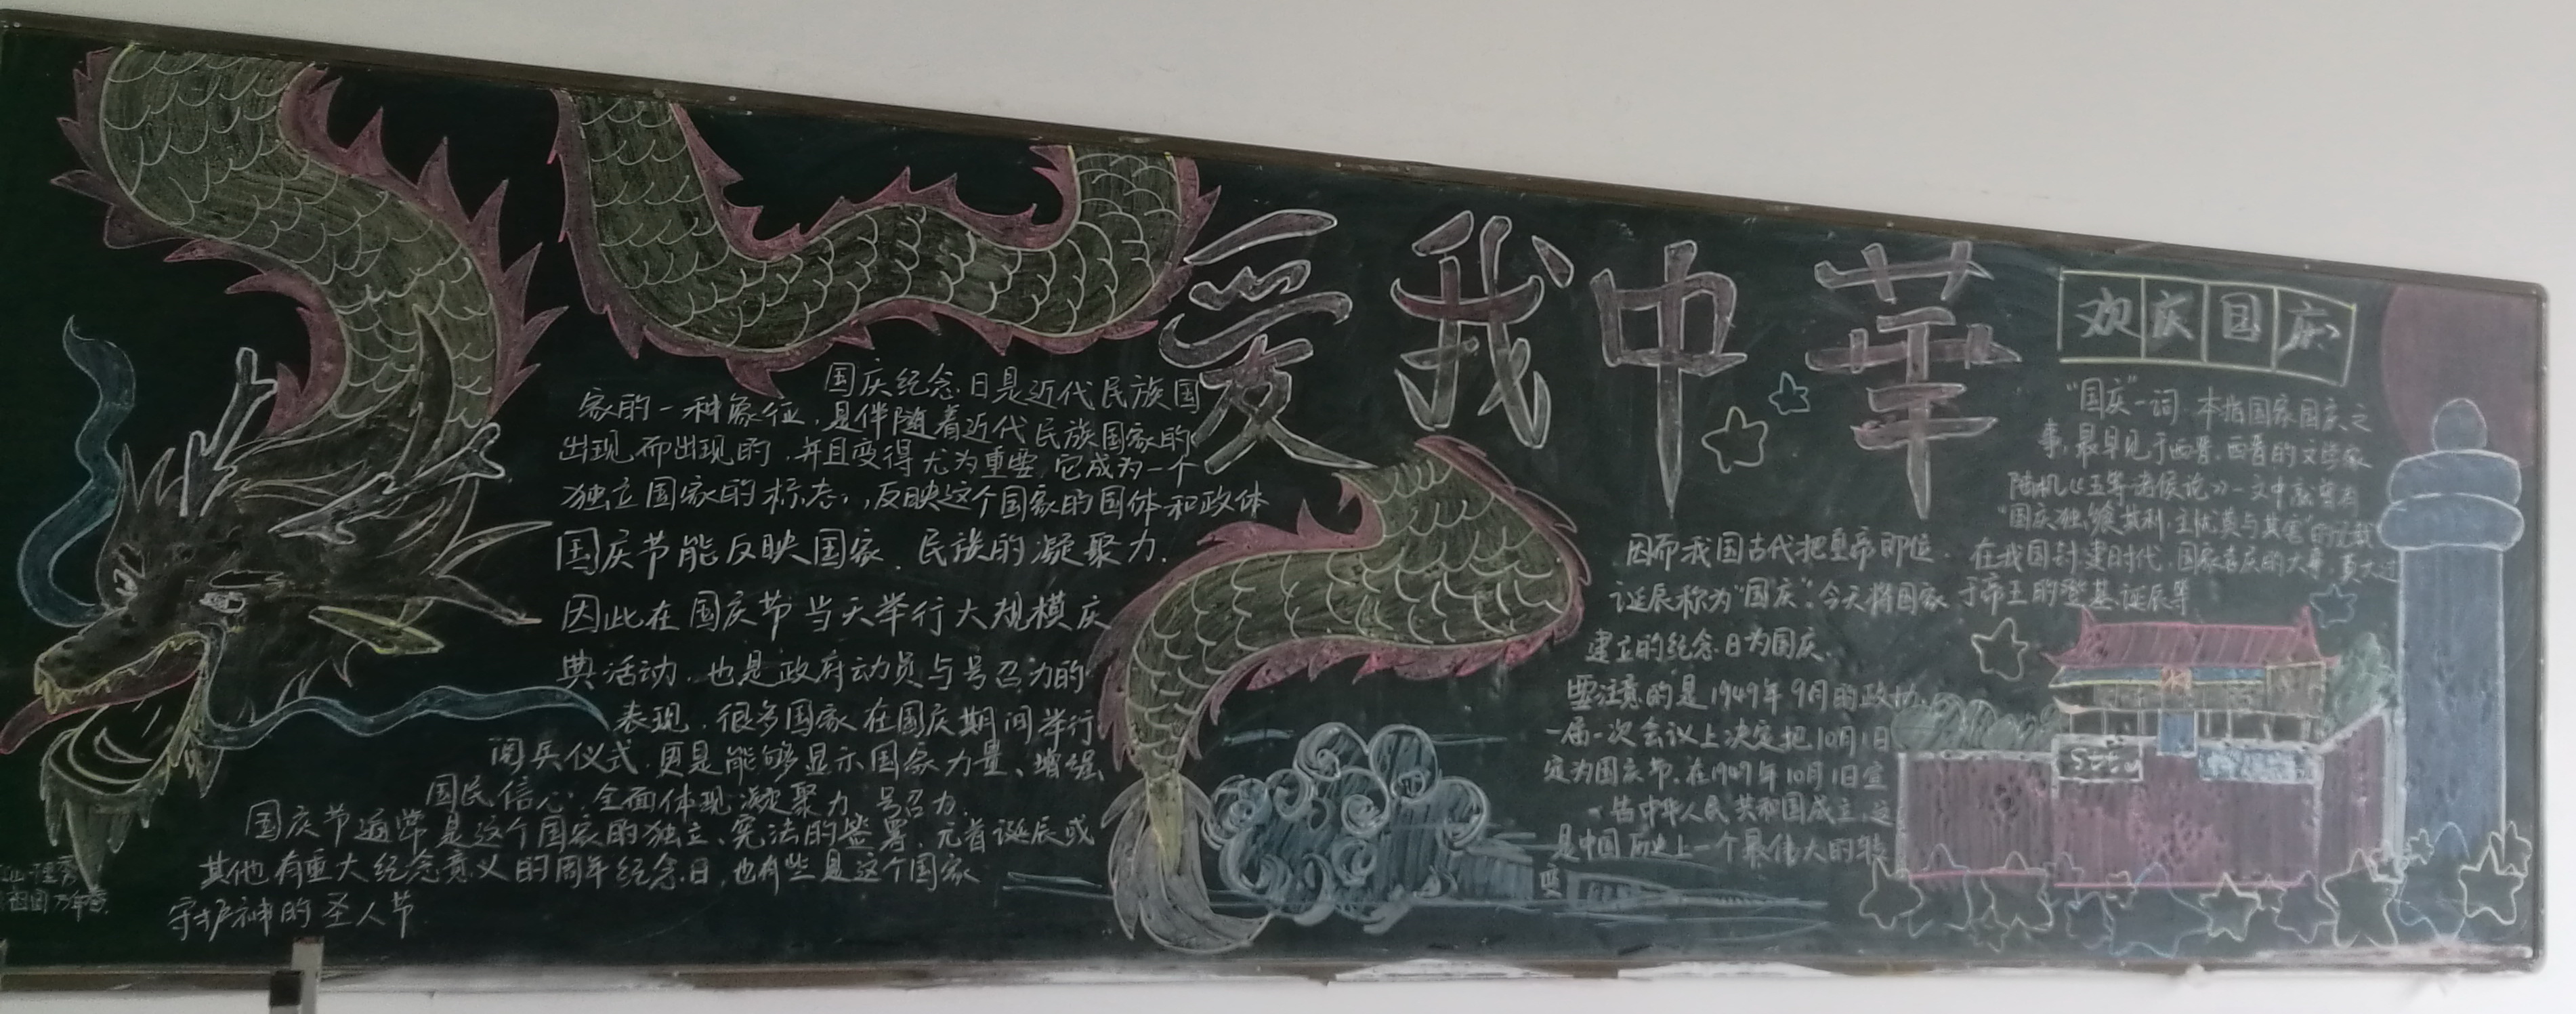 爱我中華
国庆纪念日是近代民族国
家的一种象征，是伴随着近代民族国家的
出现而出现的，并且变得尤为重要，它成为一个
独立国家的标志，反映这个国家的国体和政体
国庆节能反映国家、民族的凝聚力.
因此在国庆节当天举行大规模庆
典活动，也是政府动员与号召力的
表现，很多国家在国庆期间举行
阅兵仪式，更是能够显示国家力量、增强
国民信心，全面体现凝聚力，号召力.
国庆节通常是这个国家的独立、宪法的签署，元首诞辰或
其他有重大纪念意义的周年纪念日，也有些是这个国家
守护神的圣人节
祖国万年
欢庆国庆
“国庆”一词，本指国家国庆之
事，最早见于西晋，西晋的文学家
陆机《五等诸侯论》一文中就曾有
“国庆独飨其利，主忧莫与其害”的记载
在我国封建时代，国家喜庆的大事，莫大过
于帝王的登基诞辰等
因而我国古代把皇帝即位、
诞辰称为“国庆”.今天将国家
建立的纪念日为国庆.
要注意的是1949年9月的政协
一届一次会议上决定把10月1日
定为国庆节.在1949年10月1日宣
告中华人民共和国成立，这
是中国历史上一个最伟大的转